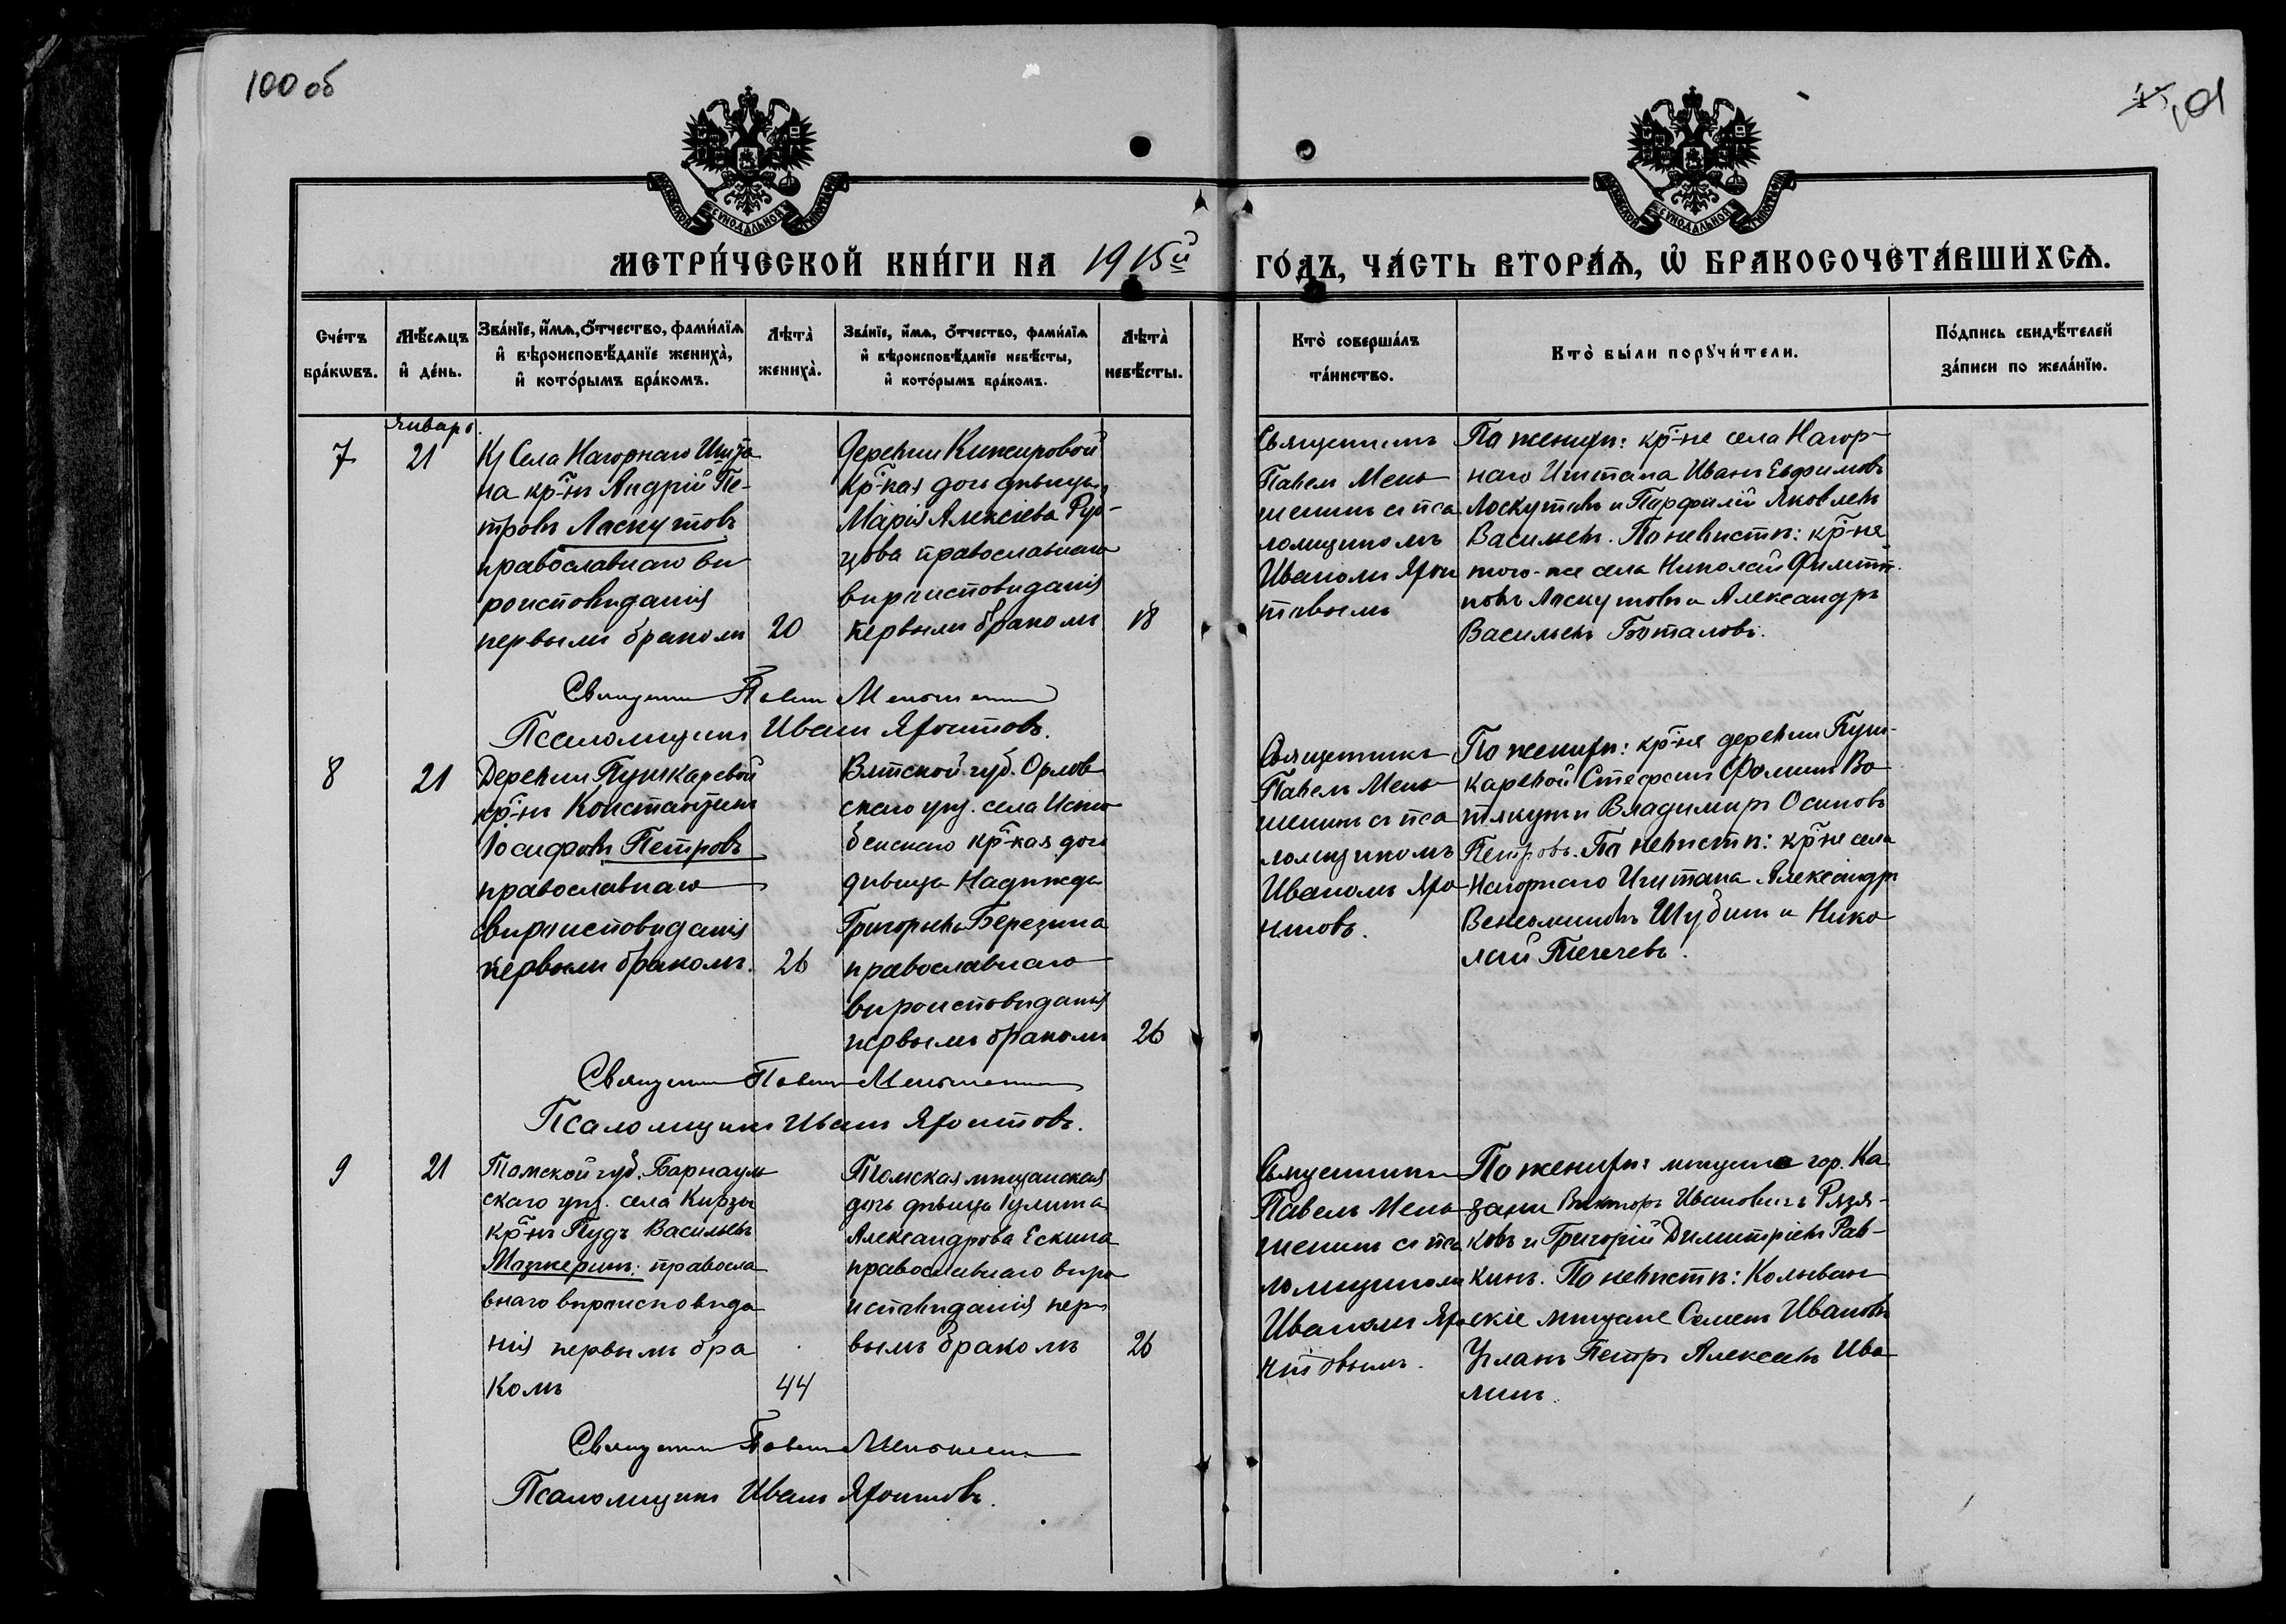 100 об
101
МЕТРИ́ЧЕСКОЙ КНИ́ГИ НА 1915й ГО́ДЪ, ЧА́СТЬ ВТОРА́Ѧ, Ѡ БРАКОСОЧЕТА́ВШИХСѦ.
Сче́тъ бра́кѡвъ.
Мѣ́сѧцъ и҆ де́нь.
Зва́нїе, и҆́мѧ, ѻ҆́тчество, фами́лїѧ
и҆ вѣроисповѣ́данїе жениха̀,
и҆ кото́рымъ бра́комъ.
Лѣта̀ жениха̀.
Зва́нїе, и҆́мѧ, ѻ҆́тчество, фами́лїѧ
и҆ вѣроисповѣ́данїе невѣ́сты,
и҆ кото́рымъ бра́комъ.
Лѣта̀ невѣ́сты.
Кто̀ соверша́лъ
та́инство.
Кто̀ бы́ли порꙋчи́тели.
По́дпись свидѣ́телей
за́писи по жела́нїю.
Январь
7
21
Села Нагорнаго Ишта
на кр-нъ Андрій Пе-
тровъ Ласкутовъ
православнаго вѣ
роисповѣданія
первымъ бракомъ
20
Деревни Кижировой
кр-кая дочь дѣвица
Марія Алексіева
православнаго
вѣроисповѣданія
первымъ бракомъ
18
Священникъ
Павелъ Мень
шенинъ съ пса
ломщикомъ
Иваномъ
По женихѣ: кр-не села Нагор-
наго Иштана Иванъ Евфимовъ
Ласкутовъ и Парфилій Яковлевъ
Васильевъ. По невѣстѣ: кр-не
того-же села Николай Филипп
повъ Ласкутовъ и Александръ
Васильевъ Боталовъ.
Священникъ Павелъ Меньшенинъ
Псаломщикъ Иванъ
8
21
Деревни Пушкаревой
кр-нъ Константинъ
Іосифовъ Петровъ
православнаго
вѣроисповѣданія
первымъ бракомъ.
26
Вятской губ. Орлов
скаго уѣз. села Исто
бенскаго кр-кая дочь
дѣвица Надежда
Григорьева Березина
православнаго
вѣроисповѣданія
первымъ бракомъ
26
Священникъ
Павелъ Мень
шенинъ съ пса
ломщикомъ
Иваномъ
По женихѣ: кр-не деревни Пуш-
каревой Стефанъ Фоминъ Во
тякузи Владимиръ Осиповъ
Петровъ. По невѣстѣ: кр-не села
Нагорнаго Иштана Александръ
Венеаминовъ Шубинъ и Нико
лай
Священникъ Павелъ Меньшенинъ
Псаломщикъ Иванъ
9
21
Томской губ. Барнауль
скаго уѣз. села Кирзы
кр-нъ Пудъ Васильевъ
православ
внаго вѣроисповѣда
нія первымъ бра
комъ
44
Томская мѣщанская
дочь дѣвица Іулита
Александрова Ескина
православнаго вѣро
исповѣданія пер
вымъ бракомъ
26
Священникъ
Павелъ Мень
шенинъ съ пса
ломщикомъ
Иваномъ
По женихѣ: мѣщане гор. Ка
зани Викторъ Ивановичъ Рязя-
ковъ и Григорій Димитріевъ Рав-
кинъ. По невѣстѣ: Колыван
скіе мѣщане Семенъ Ивановъ
Петръ Алексѣевъ Ива
Священникъ Павелъ Меньшенинъ
Псаломщикъ Иванъ